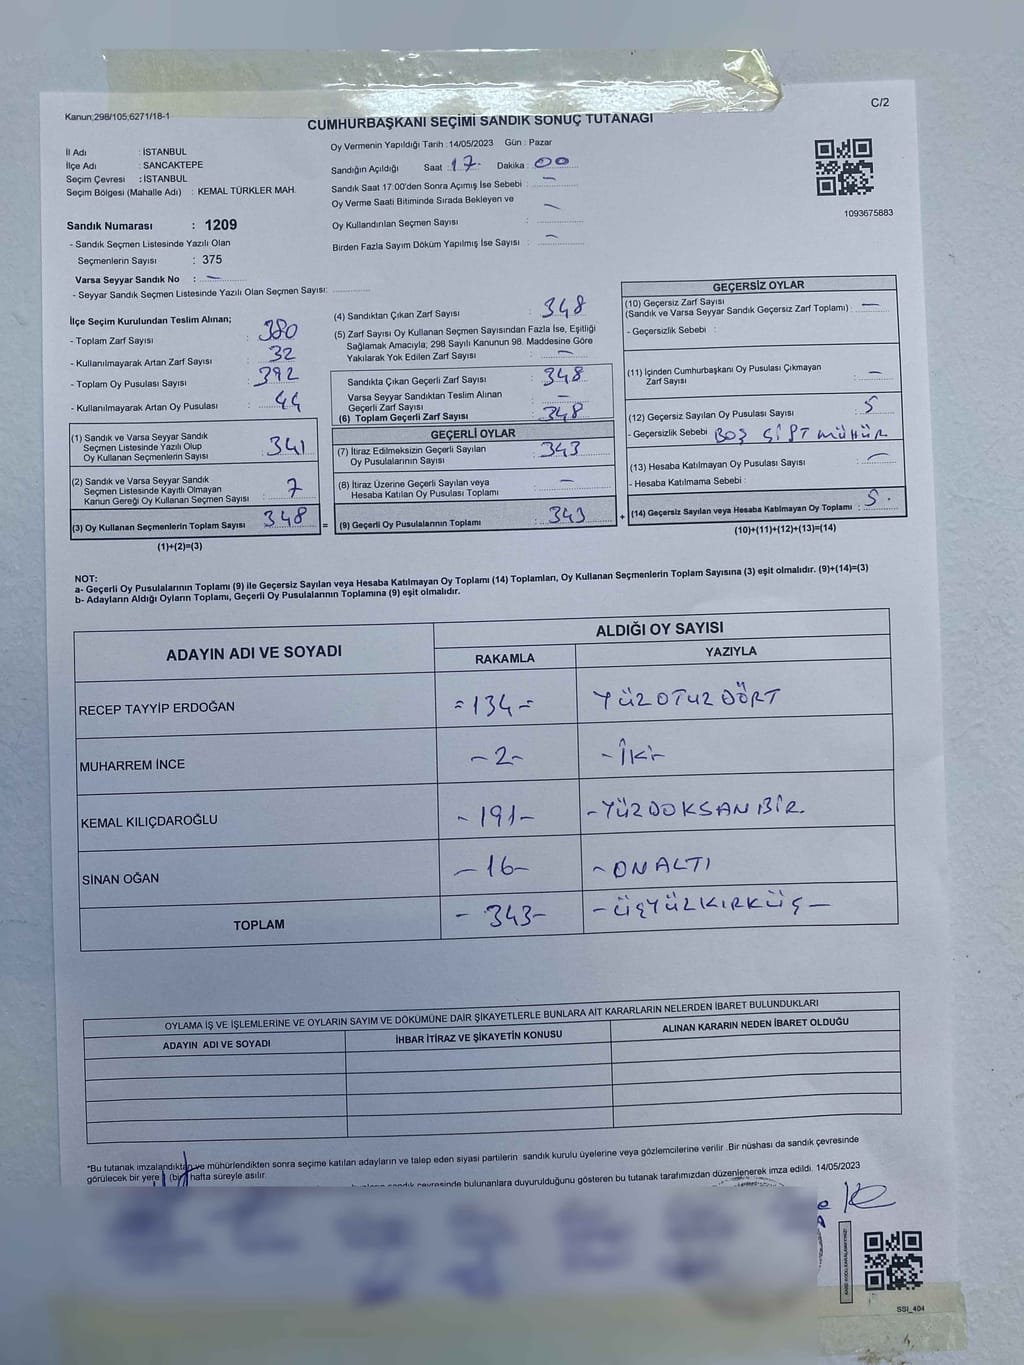 Kanun;298/105;6271/18-1
C/2
CUMHURBAŞKANI SEÇİMİ SANDIK SONUÇ TUTANAĞI
İl Adı : İSTANBUL
İlçe Adı : SANCAKTEPE
Seçim Çevresi : İSTANBUL
Seçim Bölgesi (Mahalle Adı) : KEMAL TÜRKLER MAH.
Sandık Numarası : 1209
- Sandık Seçmen Listesinde Yazılı Olan
Seçmenlerin Sayısı : 375
Varsa Seyyar Sandık No : -
- Seyyar Sandık Seçmen Listesinde Yazılı Olan Seçmen Sayısı:
Oy Vermenin Yapıldığı Tarih : 14/05/2023 Gün : Pazar
Sandığın Açıldığı Saat 17 Dakika : 00
Sandık Saat 17:00'den Sonra Açımış İse Sebebi : -
Oy Verme Saati Bitiminde Sırada Bekleyen ve
Oy Kullandırılan Seçmen Sayısı : -
Birden Fazla Sayım Döküm Yapılmış İse Sayısı : -
1093675883
İlçe Seçim Kurulundan Teslim Alınan;
- Toplam Zarf Sayısı : 380
- Kullanılmayarak Artan Zarf Sayısı : 32
- Toplam Oy Pusulası Sayısı : 392
- Kullanılmayarak Artan Oy Pusulası : 44
(1) Sandık ve Varsa Seyyar Sandık
Seçmen Listesinde Yazılı Olup
Oy Kullanan Seçmenlerin Sayısı : 341
(2) Sandık ve Varsa Seyyar Sandık
Seçmen Listesinde Kayıtlı Olmayan
Kanun Gereği Oy Kullanan Seçmen Sayısı : 7
(3) Oy Kullanan Seçmenlerin Toplam Sayısı : 348 =
(1)+(2)=(3)
(4) Sandıktan Çıkan Zarf Sayısı : 348
(5) Zarf Sayısı Oy Kullanan Seçmen Sayısından Fazla İse, Eşitliği
Sağlamak Amacıyla; 298 Sayılı Kanunun 98. Maddesine Göre
Yakılarak Yok Edilen Zarf Sayısı : -
Sandıkta Çıkan Geçerli Zarf Sayısı : 348
Varsa Seyyar Sandıktan Teslim Alınan
Geçerli Zarf Sayısı : -
(6) Toplam Geçerli Zarf Sayısı : 348
GEÇERLİ OYLAR
(7) İtiraz Edilmeksizin Geçerli Sayılan
Oy Pusulalarının Sayısı : 343
(8) İtiraz Üzerine Geçerli Sayılan veya
Hesaba Katılan Oy Pusulası Toplamı : -
(9) Geçerli Oy Pusulalarının Toplamı : 343 +
GEÇERSİZ OYLAR
(10) Geçersiz Zarf Sayısı
(Sandık ve Varsa Seyyar Sandık Geçersiz Zarf Toplamı) : -
- Geçersizlik Sebebi :
(11) İçinden Cumhurbaşkanı Oy Pusulası Çıkmayan
Zarf Sayısı : -
(12) Geçersiz Sayılan Oy Pusulası Sayısı : 5
- Geçersizlik Sebebi : BOŞ ÇİFT MÜHÜR
(13) Hesaba Katılmayan Oy Pusulası Sayısı : -
- Hesaba Katılmama Sebebi :
(14) Geçersiz Sayılan veya Hesaba Katılmayan Oy Toplamı : 5.
(10)+(11)+(12)+(13)=(14)
NOT:
a- Geçerli Oy Pusulalarının Toplamı (9) ile Geçersiz Sayılan veya Hesaba Katılmayan Oy Toplamı (14) Toplamları, Oy Kullanan Seçmenlerin Toplam Sayısına (3) eşit olmalıdır. (9)+(14)=(3)
b- Adayların Aldığı Oyların Toplamı, Geçerli Oy Pusulalarının Toplamına (9) eşit olmalıdır.
ADAYIN ADI VE SOYADI ALDIĞI OY SAYISI
RAKAMLA YAZIYLA
RECEP TAYYİP ERDOĞAN =134= YÜZOTUZDÖRT
MUHARREM İNCE -2- -İKİ-
KEMAL KILIÇDAROĞLU -191- -YÜZDOKSANBİR.
SİNAN OĞAN -16- -ONALTI
TOPLAM -343- -ÜÇYÜZKIRKÜÇ-
OYLAMA İŞ VE İŞLEMLERİNE VE OYLARIN SAYIM VE DÖKÜMÜNE DAİR ŞİKAYETLERLE BUNLARA AİT KARARLARIN NELERDEN İBARET BULUNDUKLARI
ADAYIN ADI VE SOYADI İHBAR İTİRAZ VE ŞİKAYETİN KONUSU ALINAN KARARIN NEDEN İBARET OLDUĞU
*Bu tutanak imzalandıktan ve mühürlendikten sonra seçime katılan adayların ve talep eden siyasi partilerin sandık kurulu üyelerine veya gözlemcilerine verilir .Bir nüshası da sandık çevresinde
görülecek bir yere (bir) hafta süreyle asılır.
sandık çevresinde bulunanlara duyurulduğunu gösteren bu tutanak tarafımızdan düzenlenerek imza edildi. 14/05/2023
SSI_404